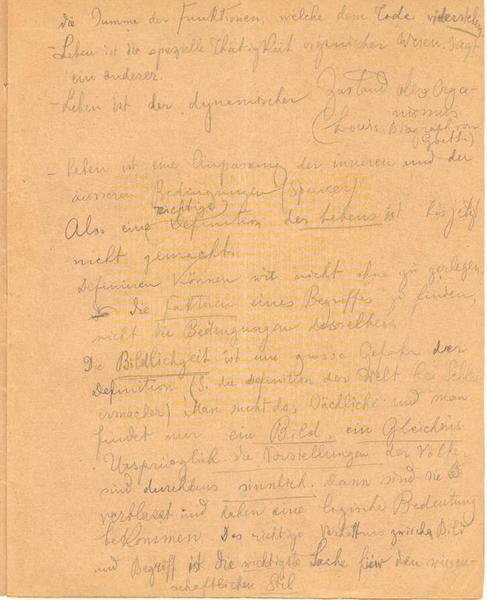 die Summe der Funktionen, welche dem Tode widerstehen
- Leben ist die spezielle Thätigkeit organischer Wesen, sagt
ein anderer.
- Leben ist der dynamischer Zustand des Orga-
nismus
(Louis. Biograph von
Goethe)
- Leben ist eine Anpassung der inneren und der
äusseren Bedingungen (Spencer)
richtige
Also eine Definition des Lebens ist bis jetzt
nicht gemacht.
Definiren können wir nicht ohne zu zerlegen
die Faktoren eines Begriffes zu finden,
nicht die Bedingungen desselben.
Die Bildlichkeit ist eine grosse Gefahr der
Definition (S. die Definition der Welt bei Schlei
ermacher) Man sucht das Sächliche und man
findet nur ein Bild, ein Gleichnis
Ursprünglich die Vorstellungen der Völker
sind durchaus sinnlich. Dann sind sie
verblasst und haben eine logische Bedeutung
bekommen. Das richtige Verhältnis zwischen Bild
und Begriff ist die wichtigste Sache für den wissen-
schaftlichen Stil